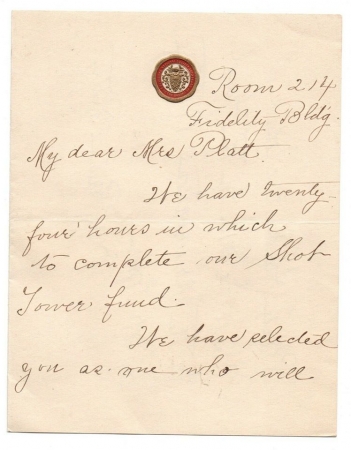 Room 214
Fidelity Bldg.
My dear Mrs Platt
We have twenty
four hours in which
to complete our Shot
Tower fund.
We have selected
you as one who will